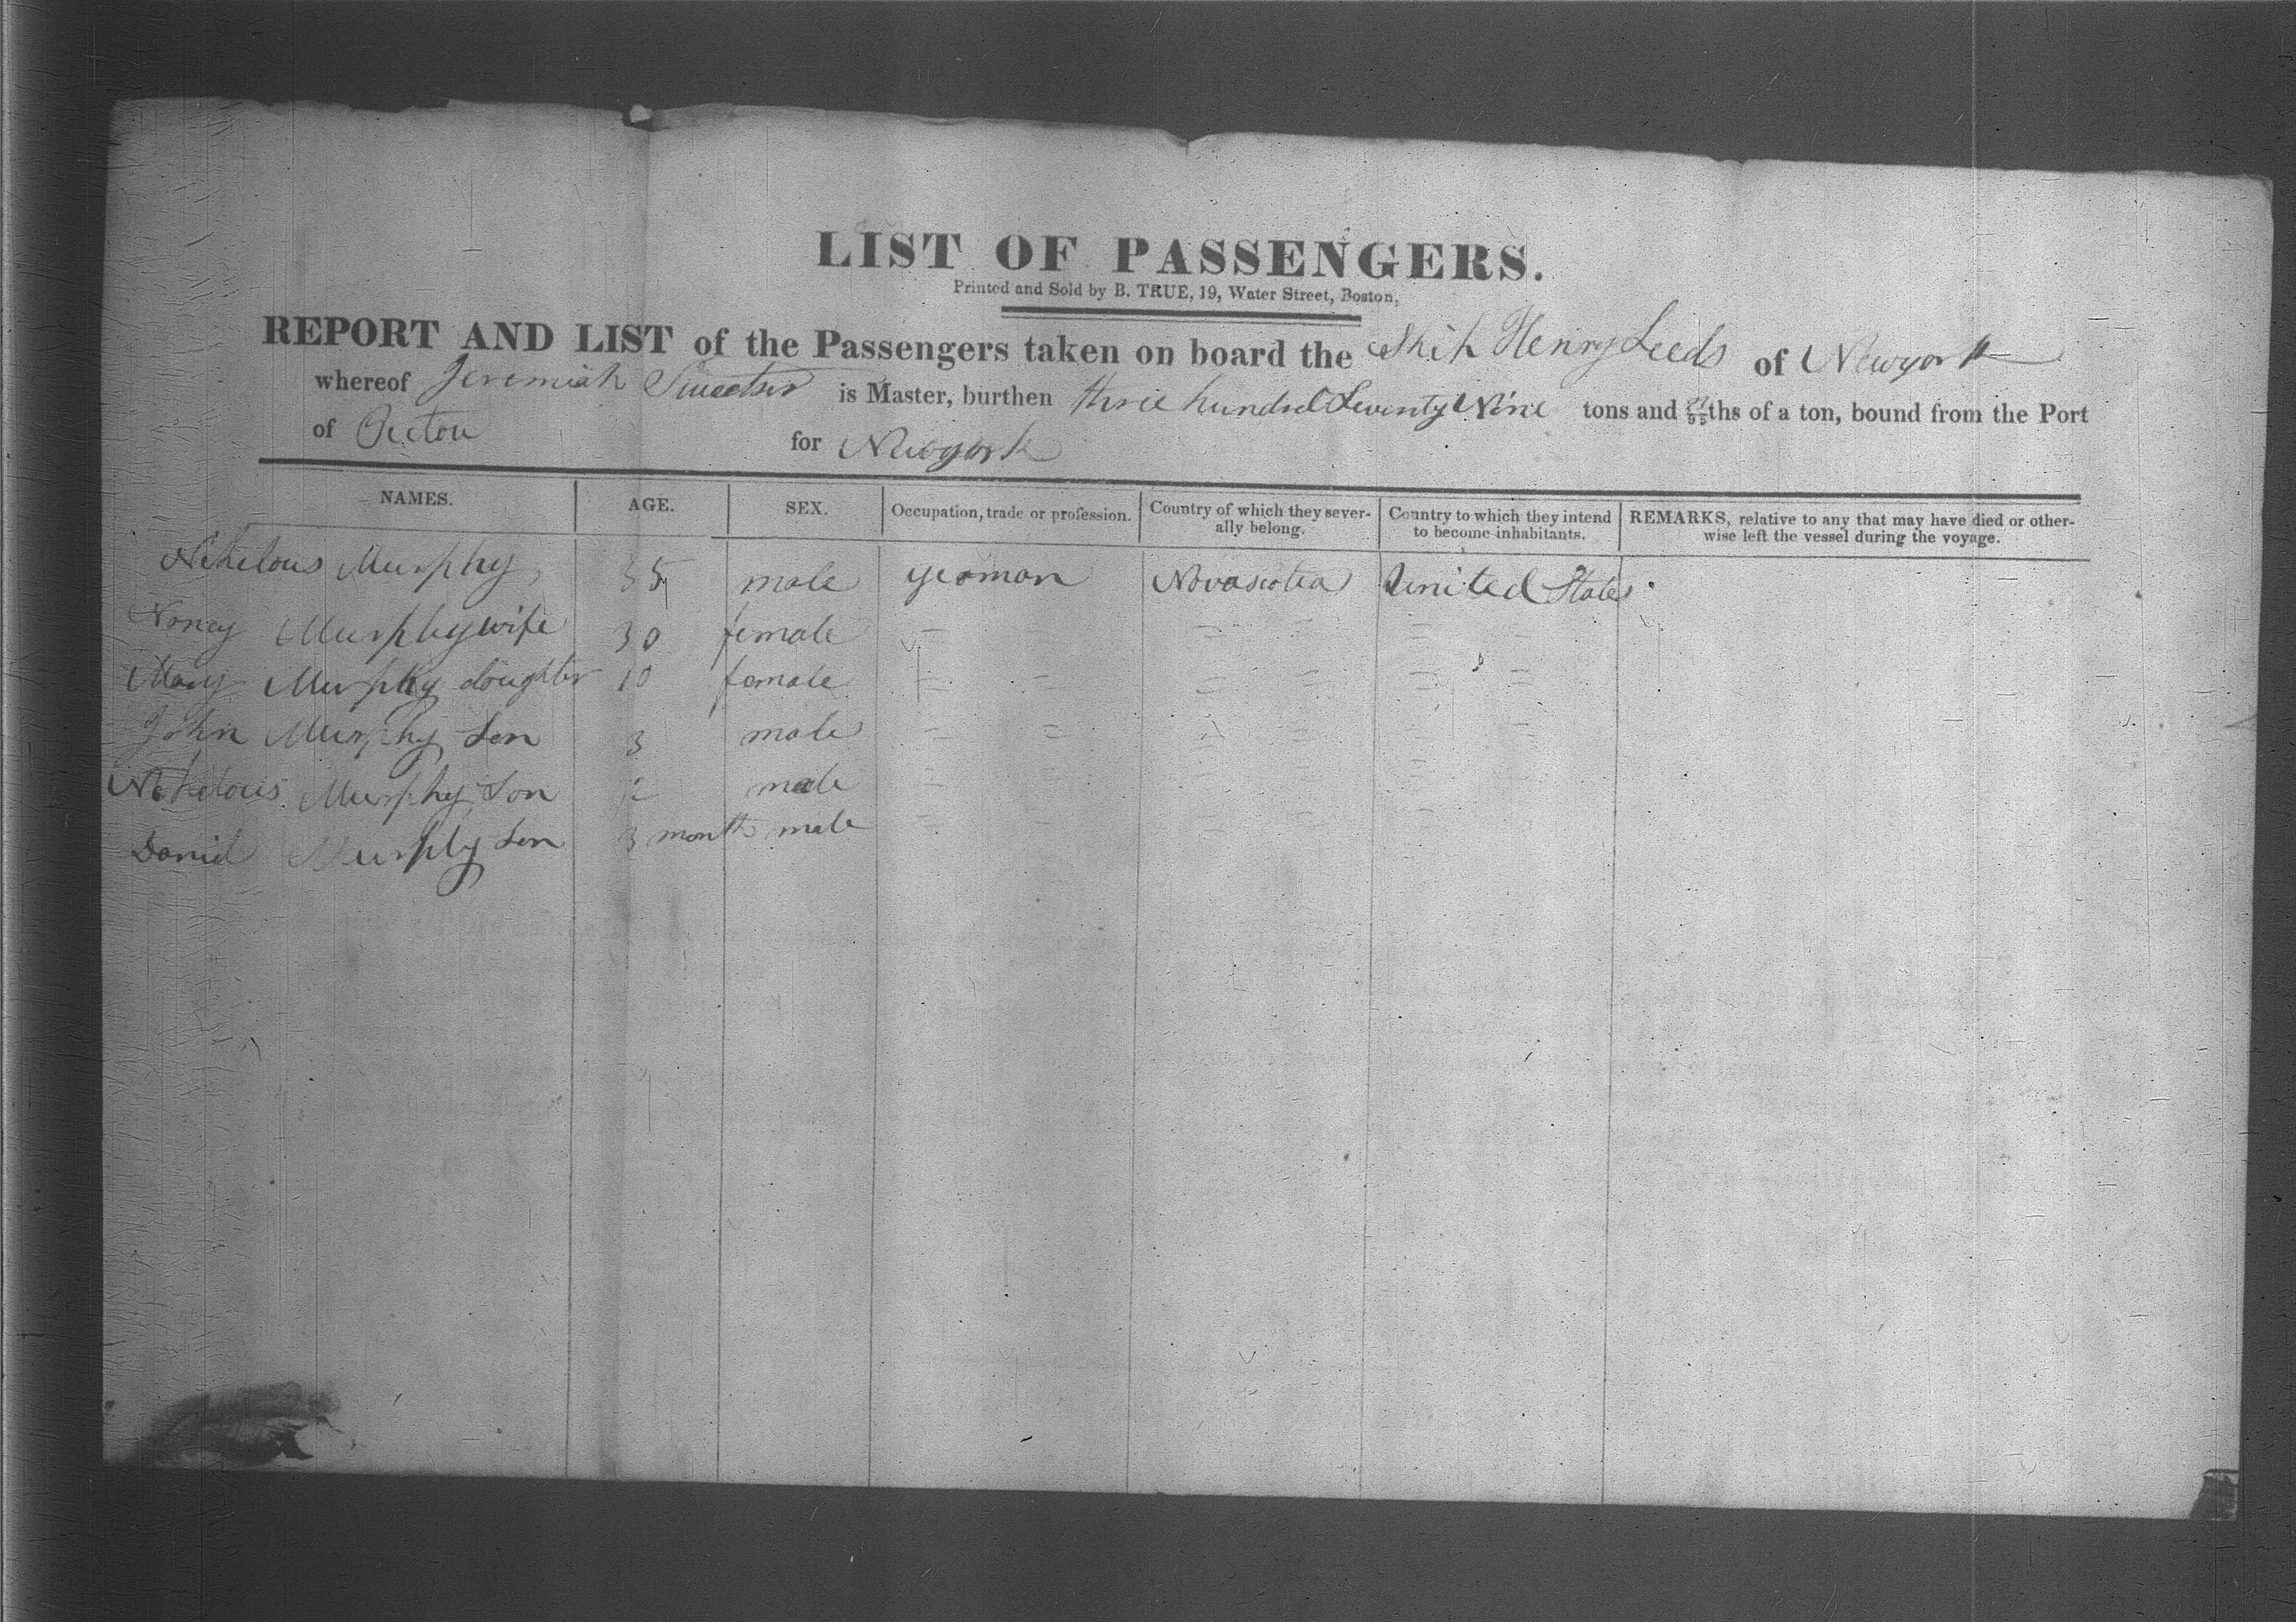 LIST OF PASSENGERS.
Printed and Sold by B. TRUE, 19, Water Street, Boston,
REPORT AND LIST of the Passengers taken on board the Ship Henry Leeds of Newyork
whereof Jeremiah Sweetser is Master, burthen three hundred Seventy Nine tons and /95ths of a ton, bound from the Port
of Pictou for Newyork
NAMES. AGE. SEX. Occupation, trade or profession. Country of which they severally belong. Country to which they intend to become inhabitants. REMARKS, relative to any that may have died or otherwise left the vessel during the voyage.
Nicholous Murphy 35 male yeoman Novascotia United States
Nancy Murphy wife 30 female
Mary Murphy doughter 10 female
John Murphy Son 3 male
Nicholous Murphy Son 2 male
Daniel Murphy Son 3 month male